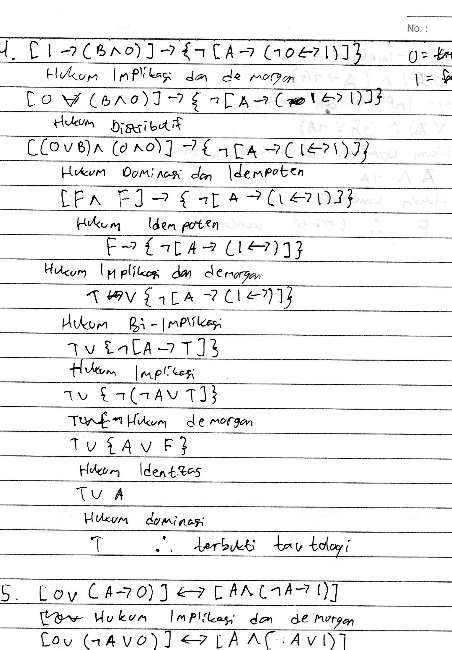 No. :
4. [1 → (B∧0)] → {¬[A → (¬0↔1)]} 0 =
Hukum Implikasi dan de morgan 1 =
[0 ∨ (B∧0)] → {¬[A → (1↔1)]}
Hukum Distributif
[(0∨B)∧(0∧0)] → {¬[A → (1↔1)]}
Hukum Dominasi dan Idempoten
[F∧ F] → {¬[A → (1↔1)]}
Hukum Idempoten
F → {¬[A → (1↔)]}
Hukum Implikasi dan demorgan
T ∨ {¬[A → (1↔)]}
Hukum Bi-Implikasi
T∨ {¬[A → T]}
Hukum Implikasi
T∨ {¬(¬A∨T]}
Hukum de morgan
T∨ {A ∨ F}
Hukum Identitas
T∨ A
Hukum dominasi
T ∴ terbukti tautologi
5. [0∨ (A→0)] ↔ [A∧(¬A→1)]
Hukum Implikasi dan de morgan
[0∨ (¬A∨0)] ↔ [A∧(¬A∨1)]